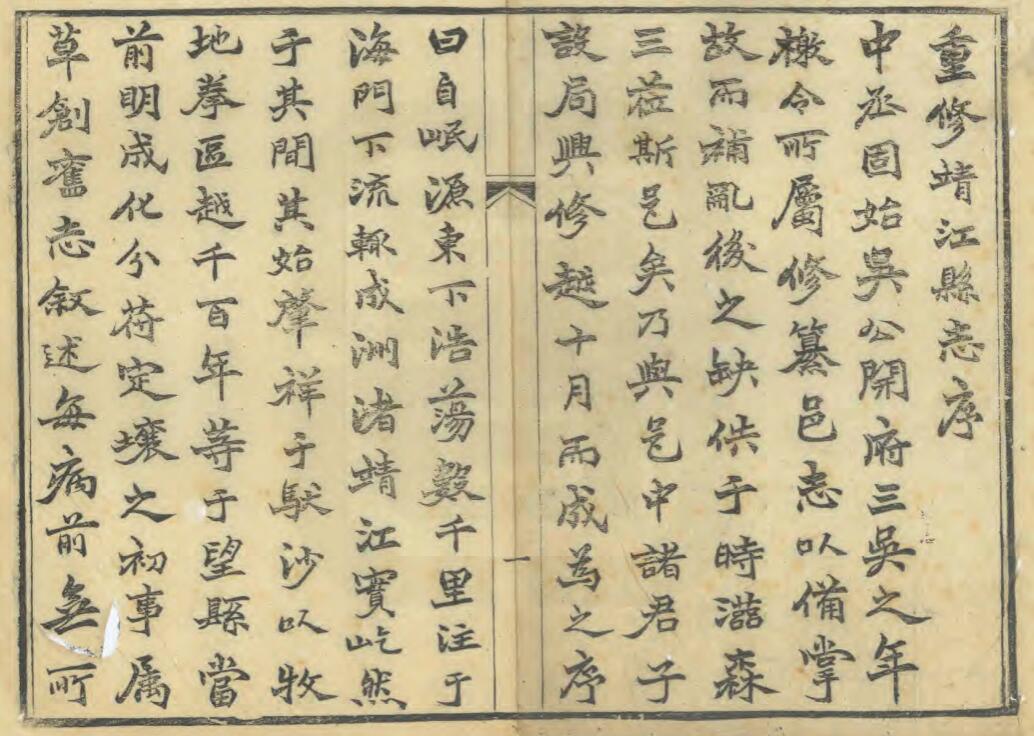 重修靖江縣志序
中丞固始吳公開府三吳之年
檄令所屬修纂邑志以備掌
故而補亂後之缺佚于時滋森
三蒞斯邑矣乃與邑中諸君子
設局興修越十月而成為之序
一
曰自岷源東下浩蕩數千里注于
海門下流輙成洲渚靖江實屹然
于其間其始肇祥于馱沙以牧
地拳區越千百年等于望縣當
前明成化分符定壤之初事属
草創舊志敘述每病前無所